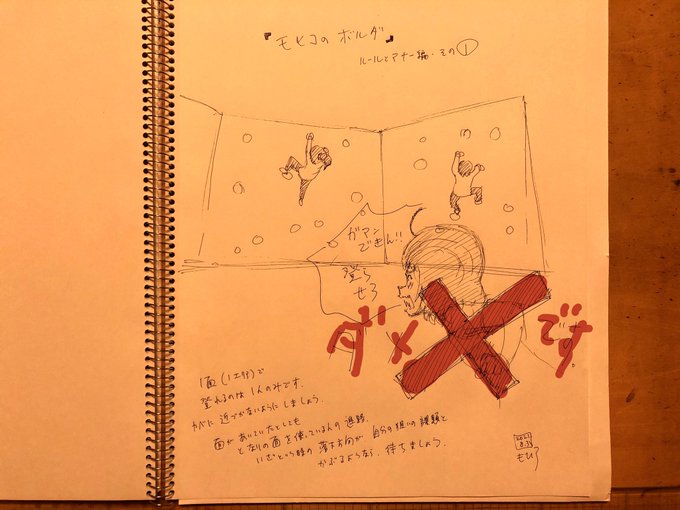 『モヒコの ボルダ』
ルールとマナー編・その①
ガマン
できん!!
登ら
せろ
ダメです
1面(1エリア)で
登れるのは1人のみです。
カベに近づかないようにしましょう。
面があいていたとしても
となりの面を使っている人の進路、
いざという時の落下方向が 自分の狙いの課題と
かぶるようなら、待ちましょう。
2021
8.31
もひろ